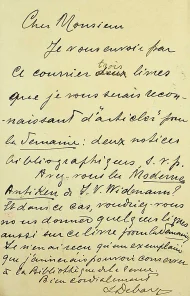 Cher Monsieur
Je vous envoie par
ce courrier trois livres
que je vous serais recon-
naissant d'articles pour
la Semaine : deux notices
bibliographiques, s.v.p.
Avez-vous les Modernen
Antiken de J. V. Widmann?
Et dans ce cas, voudriez-vous
nous donner quelques lignes
aussi sur ce livre pour la Semaine.
Je n'en ai reçu qu'un exemplaire
que j'aimerais pouvoir conserver
à la Bibliothèque de la Revue
Bien cordialement